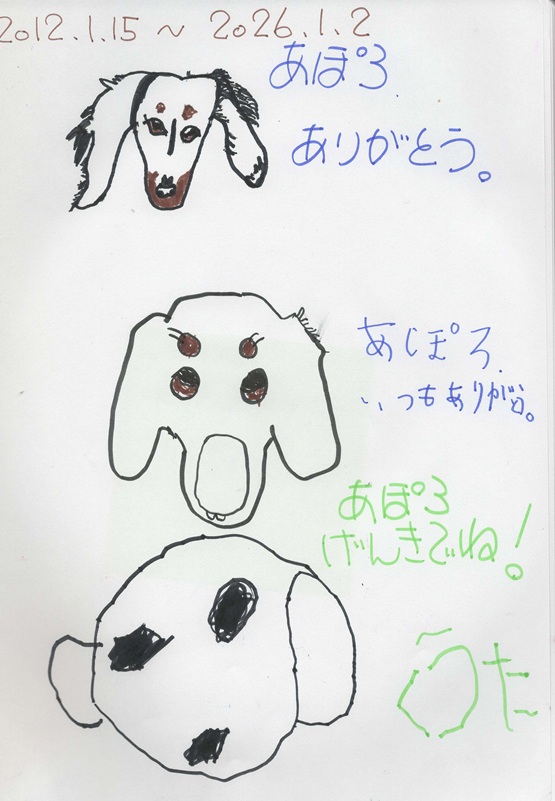 2012.1.15 ~ 2026.1.2
あぽろ
ありがとう。
あぽろ.
いつもありがとう。
あぽろ
げんきでね!
うた